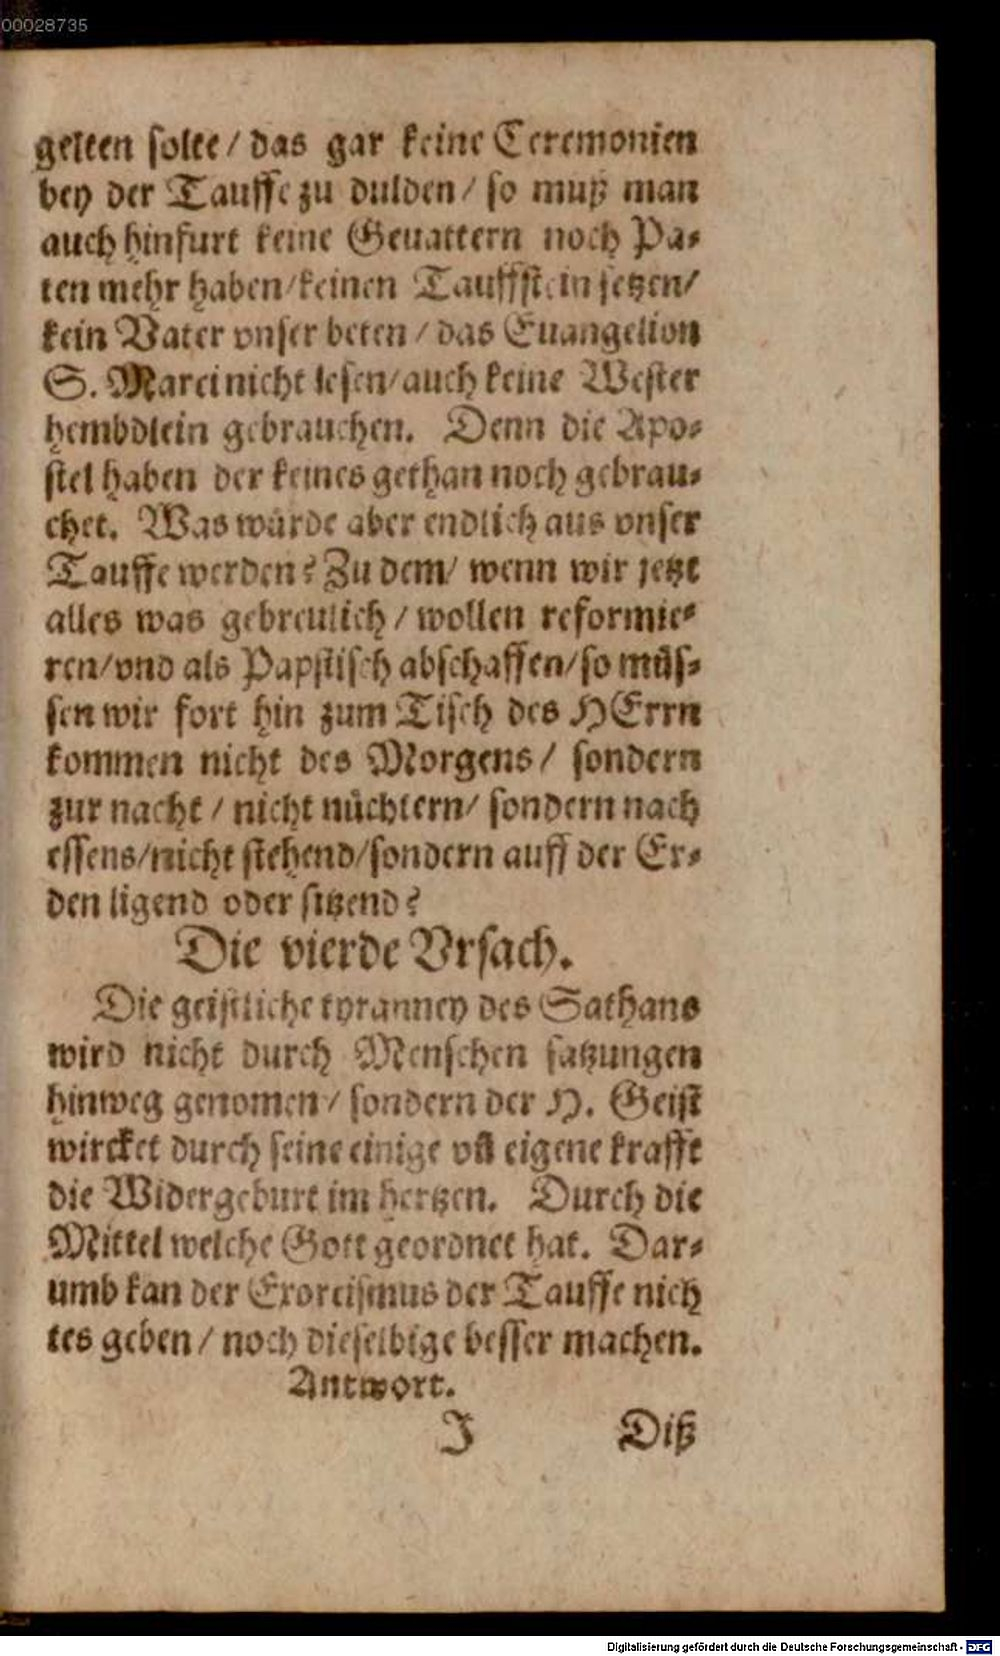 00028735
gelten solte / das gar keine Ceremonien
bey der Tauffe zu dulden / so muß man
auch hinfurt keine Geuattern noch Pa-
ten mehr haben / keinen Tauffstein setzen /
kein Vater vnser beten / das Euangelion
S. Marci nicht lesen / auch keine Wester
hembdlein gebrauchen. Denn die Apo-
stel haben der keines gethan noch gebrau-
chet. Was wůrde aber endlich aus vnser
Tauffe werden? Zu dem / wenn wir jetzt
alles was gebreulich / wollen reformie-
ren / vnd als Papstisch abschaffen / so můs-
sen wir fort hin zum Tisch des HErrn
kommen nicht des Morgens / sondern
zur nacht / nicht nůchtern / sondern nach
essens / nicht stehend / sondern auff der Er-
den ligend oder sitzend?
Die vierde Vrsach.
Die geistliche tyranney des Sathans
wird nicht durch Menschen satzungen
hinweg genomen / sondern der H. Geist
wircket durch seine einige vñ eigene krafft
die Widergeburt im hertzen. Durch die
Mittel welche Gott geordnet hat. Dar-
umb kan der Exorcismus der Tauffe nich
tes geben / noch dieselbige besser machen.
Antwort.
J Diß
Digitalisierung gefördert durch die Deutsche Forschungsgemeinschaft - DFG